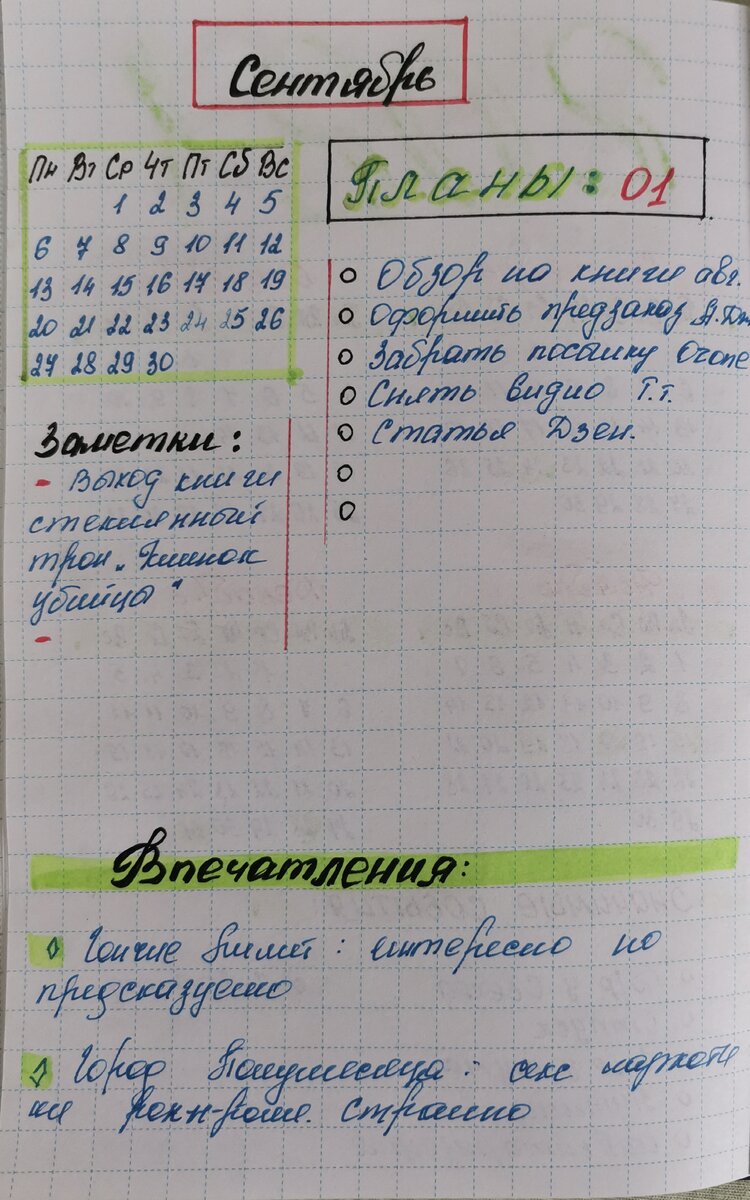 Сентябрь
Пн Вт Ср Чт Пт Сб Вс
1 2 3 4 5
6 7 8 9 10 11 12
13 14 15 16 17 18 19
20 21 22 23 24 25 26
27 28 29 30
Планы: 01
Обзор по книги авг.
Оформить предзаказ А. Дж
Забрать посылку Ozone
Снять видио Т.т.
Статья Дзен.
Заметки:
- Выход книги
стеклянный
трон „Клинок
убийцы“
-
Впечатления:
Гончие Лилит: интересно но
предсказуемо
Город Полумесяца: секс наркоти
ки рок-н-ролл. странно